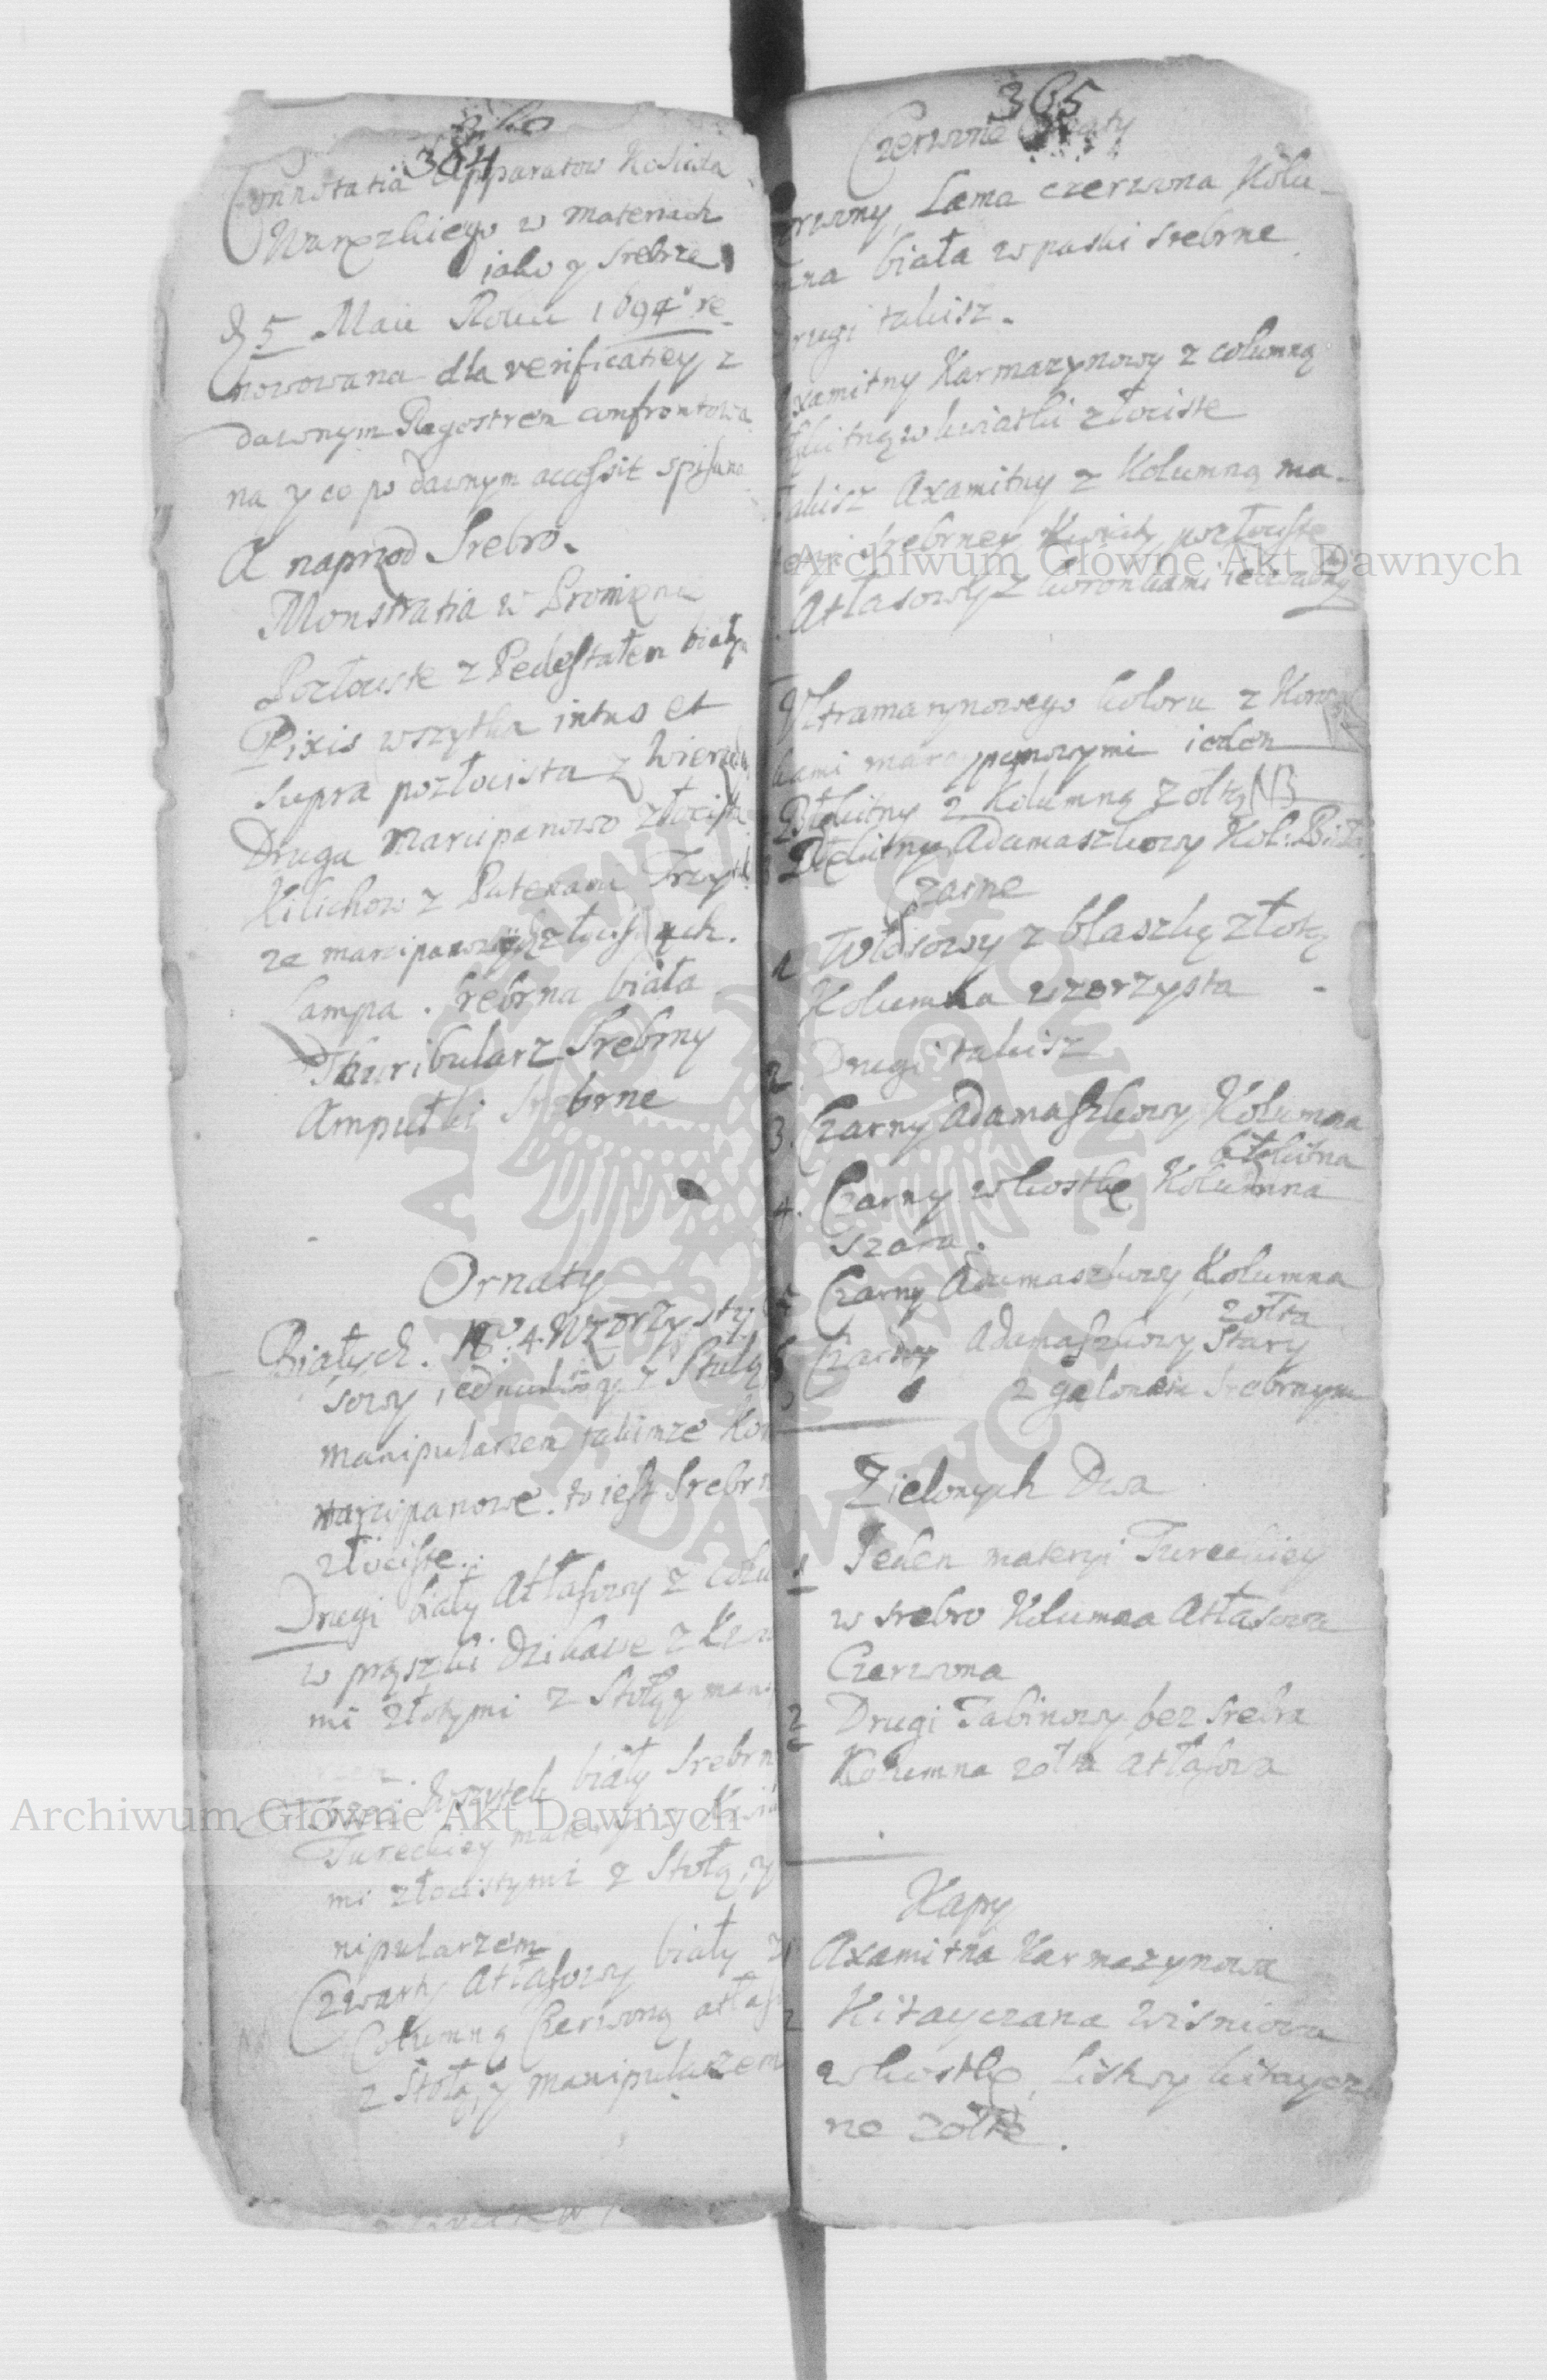 384
Connotatia Apparatow Kosciola
Waręzkiego w materiach
iako y srebrze
D 5 Maii Roku 1694 re-
nowowana dla verificatiey z
dawnym Regestrem confrontowa
na y co po dawnym accessit spisano
A naprzod Srebro.
Monstratia w Promięnie
Pozłociste z Pedestałem białym
Pixis wszytka intus et
supra pozłocista z wierzch
Druga marcipanowo złocista
Kilichow z Patenami Trzy
ze marcipanowo złocistych.
Lampa srebrna biała
Thuribularz Srebrny
Ampułki Srebrne
Ornaty
Białych. No. 4. Wzorzysty
sowy, iednaki z Stulą
manipularzem takimze Ko
marcipanowe. to iest Srebrn
złociste.
Drugi biały Atłasowy z colu
w prązki dzikawe z
mi złotymi z Stołą y mani
Trzeci wszytek biały Srebrn
Tureckiey materyi z Kwia
mi złocistymi z Stołą, y
nipularzem
Czwarty Atłasowy biały z
Columną Czerwoną atłas
z Stołą, y manipularzem
365
Czerwone Ornaty
erwony, Lama czerwona Kolu-
mna biała w paski srebrne
rugi takisz.
xamitny Karmazynowy z columną
łękitną w kwiatki złociste
akisz Axamitny z Kolumną ma-
eryi srebrney Kwiaty pozłociste
Atłasowy z koronkami iedwabny
Ultramarynowego koloru z Koron
kami marcypanowymi ieden
Błękitny z Kolumną zołtą NB
Błękitny Adamaszkowy Kol: Biała
Czarne
1 Włosowy z blaszką złotą
Kolumna wzorzysta
2 Drugi takisz
3. Czarny Adamaszkowy Kolumna
błękitna
4. Czarny w kostkę Kolumna
szara.
5 Czarny Adamaszkowy, Kolumna
zołta
6 Czarny Adamaszkowy Stary
z galonem srebrnym
Zielonych Dwa
1 Jeden materyi Tureckiey
w srebro Kolumna Atłasowa
Czerwona
2 Drugi Tabinowy bez srebra
Kolumna zołta atłasowa
Kapy
1 Axamitna Karmazynowa
2 Kitayczana Wisniowa
w kostkę, listwy kitaycza
ne zołte.
Archiwum Główne Akt Dawnych
Archiwum Główne Akt Dawnych
ARCHIWUM GŁÓWNE
AKT DAWNYCH